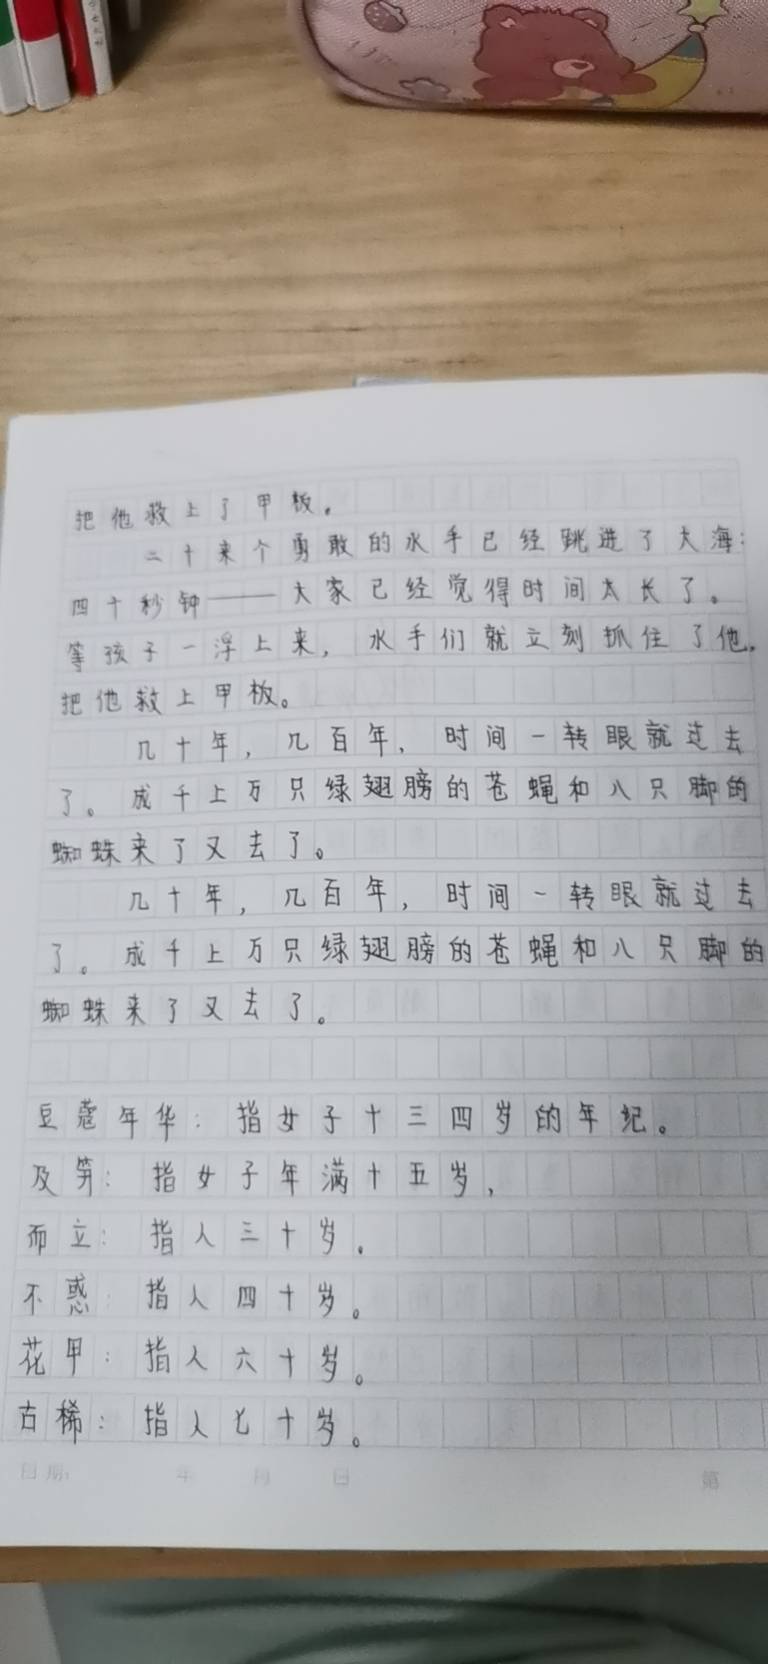 把他救上了甲板。
二十来个勇敢的水手已经跳进了大海：
四十秒钟——大家已经觉得时间太长了。
等孩子一浮上来，水手们就立刻抓住了他，
把他救上甲板。
几十年，几百年，时间一转眼就过去
了。成千上万只绿翅膀的苍蝇和八只脚的
蜘蛛来了又去了。
几十年，几百年，时间一转眼就过去
了。成千上万只绿翅膀的苍蝇和八只脚的
蜘蛛来了又去了。
豆蔻年华：指女子十三四岁的年纪。
及笄：指女子年满十五岁，
而立：指人三十岁。
不惑：指人四十岁。
花甲：指人六十岁。
古稀：指人七十岁。
日期： 年 月 日 第